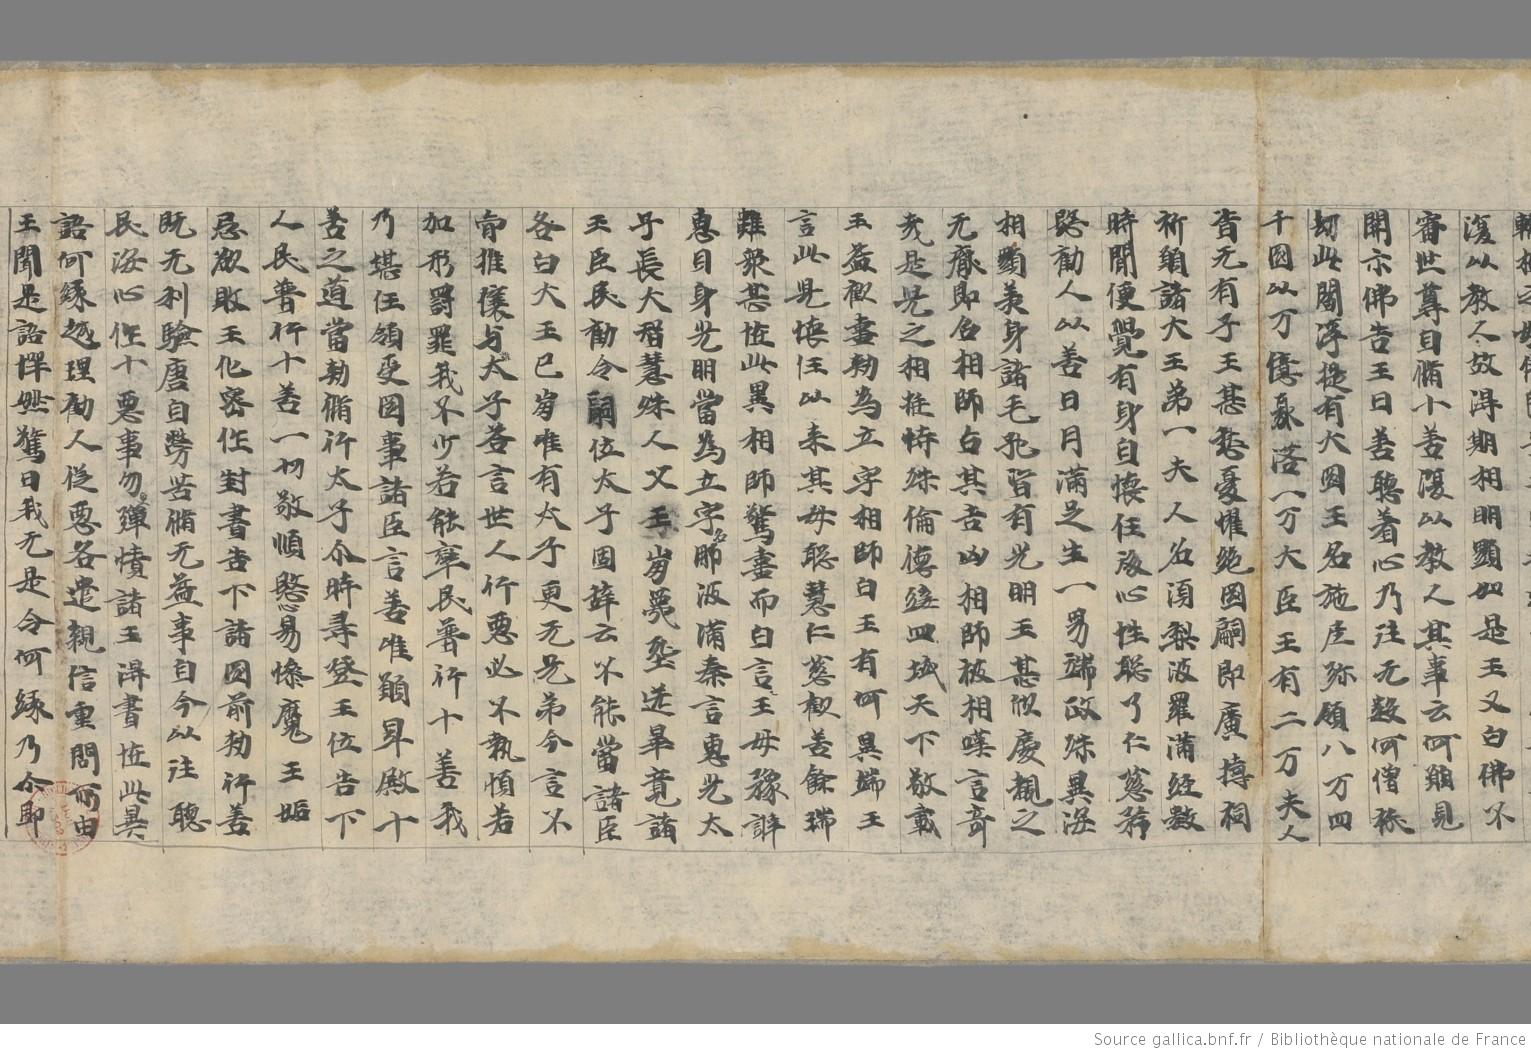 復以教人故得期相明顯如是王又白佛不
審世尊自脩十善復以教人其事云何願見
開示佛告王曰善聽著心乃往无數阿僧祇
劫此閻浮提有大國王名施陀弥領八万四
千國以万億聚落一万大臣王有二万夫人
皆无有子王甚愁憂懼絕國嗣即廣禱祠
祈諸大王弟一夫人名須梨波羅蒲經數
時間便覺有身自懷任後心性聰了仁慈矜
愍勸人以善日月滿足生一男端政殊異
相顯美身諸毛孔皆有光明王甚欣慶覩之
无厭即召相師占其吉凶相師披相嘆言奇
哉是兒之相挺特殊倫德四域天下敬戴
王益歡喜勅為立字相師白王有何異端王
言此兒懷任以来其母聡慧仁慈歡善餘瑞
雖衆甚怪此異相師驚喜而白言王母豫
惠目身光明當為立字那波滿秦言惠光太
子長大智慧殊人父王崩塟送畢竟諸
王臣民勸令嗣位太子固辭云不能當諸臣
各白大王已崩唯有太子更无兄弟今言不
肯推讓与太子荅言世人行惡必不執順若
加形罰罪我不少若能率民普行十善我
乃堪任領受國事諸臣言善唯願昇殿十
善之道當勅脩行太子尒時尋登王位告下
人民普行十善一切敬順愍易魔王姤
忌欲敗王化密作封書告下諸國前勅行善
既无利驗唐自勞苦脩无益事自今以往聽
民恣心作十惡事勿憤諸王得書怪此異
語何緣越理勸人從惡各遣親信重問所由
王聞是語然驚曰我无是令何緣乃尒即